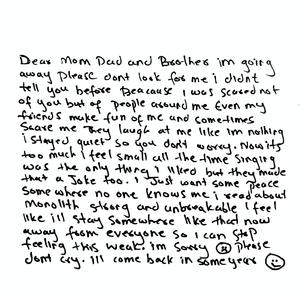 Dear Mom Dad and Brother im going
away please dont look for me i didnt
tell you before beacause i was scared not
of you but of people around me Even my
friends make fun of me and sometimes
scare me They laugh at me like im nothing
i stayed quiet so you don't worry. Now its
too much i feel small all the time singing
was the only thing i liked but they made
that a Joke too. i Just want some peace
somewhere no one knows me i read about
monolith strong and unbreakable i feel
like ill stay somewhere like that now
away from everyone so i can stop
feeling this weak. im sorry ☹ please
dont cry. ill come back in some years ☺